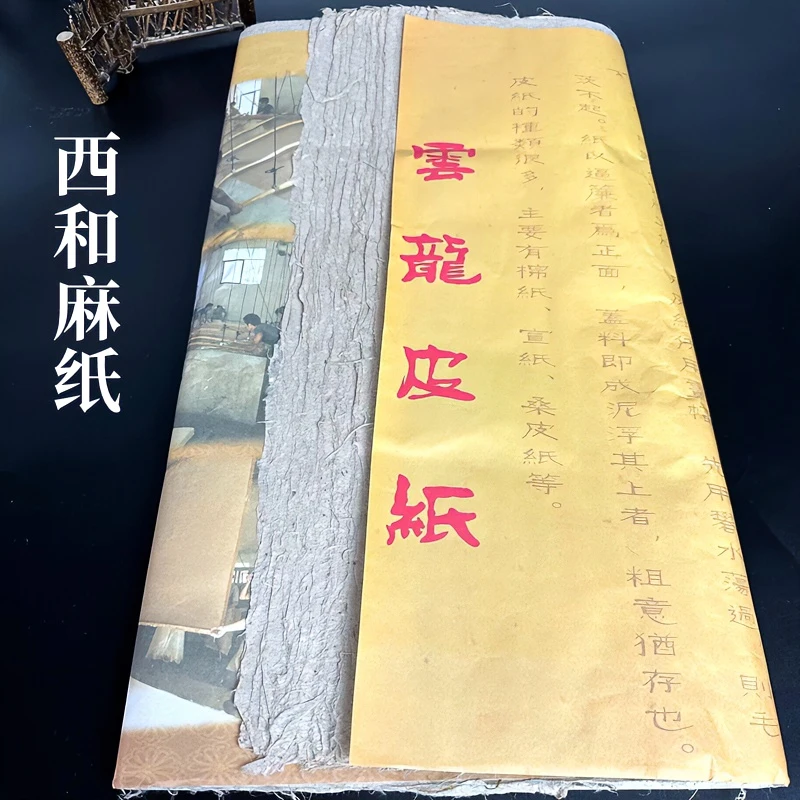 西和麻纸
雲龍皮紙
茨不起。紙以逼簾者爲正面，蓋料即成泥浮其上者，粗意猶存也。
皮紙的種類很多，主要有棉紙、宣紙、桑皮紙等。
先用碧水蕩過
則毛